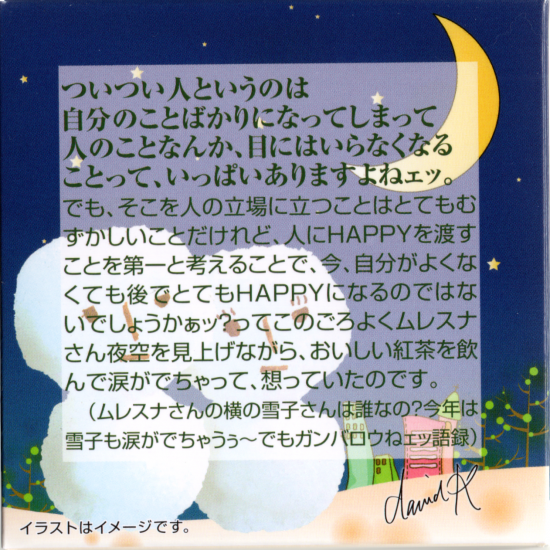 ついつい人というのは
自分のことばかりになってしまって
人のことなんか、目にはいらなくなる
ことって、いっぱいありますよねェッ。
でも、そこを人の立場に立つことはとてもむ
ずかしいことだけれど、人にHAPPYを渡す
ことを第一と考えることで、今、自分がよくな
くても後でとてもHAPPYになるのではな
いでしょうかぁッ?ってこのごろよくムレスナ
さん夜空を見上げながら、おいしい紅茶を飲
んで涙がでちゃって、想っていたのです。
(ムレスナさんの横の雪子さんは誰なの?今年は
雪子も涙がでちゃうぅ〜でもガンバロウねェッ語録)
david K
イラストはイメージです。